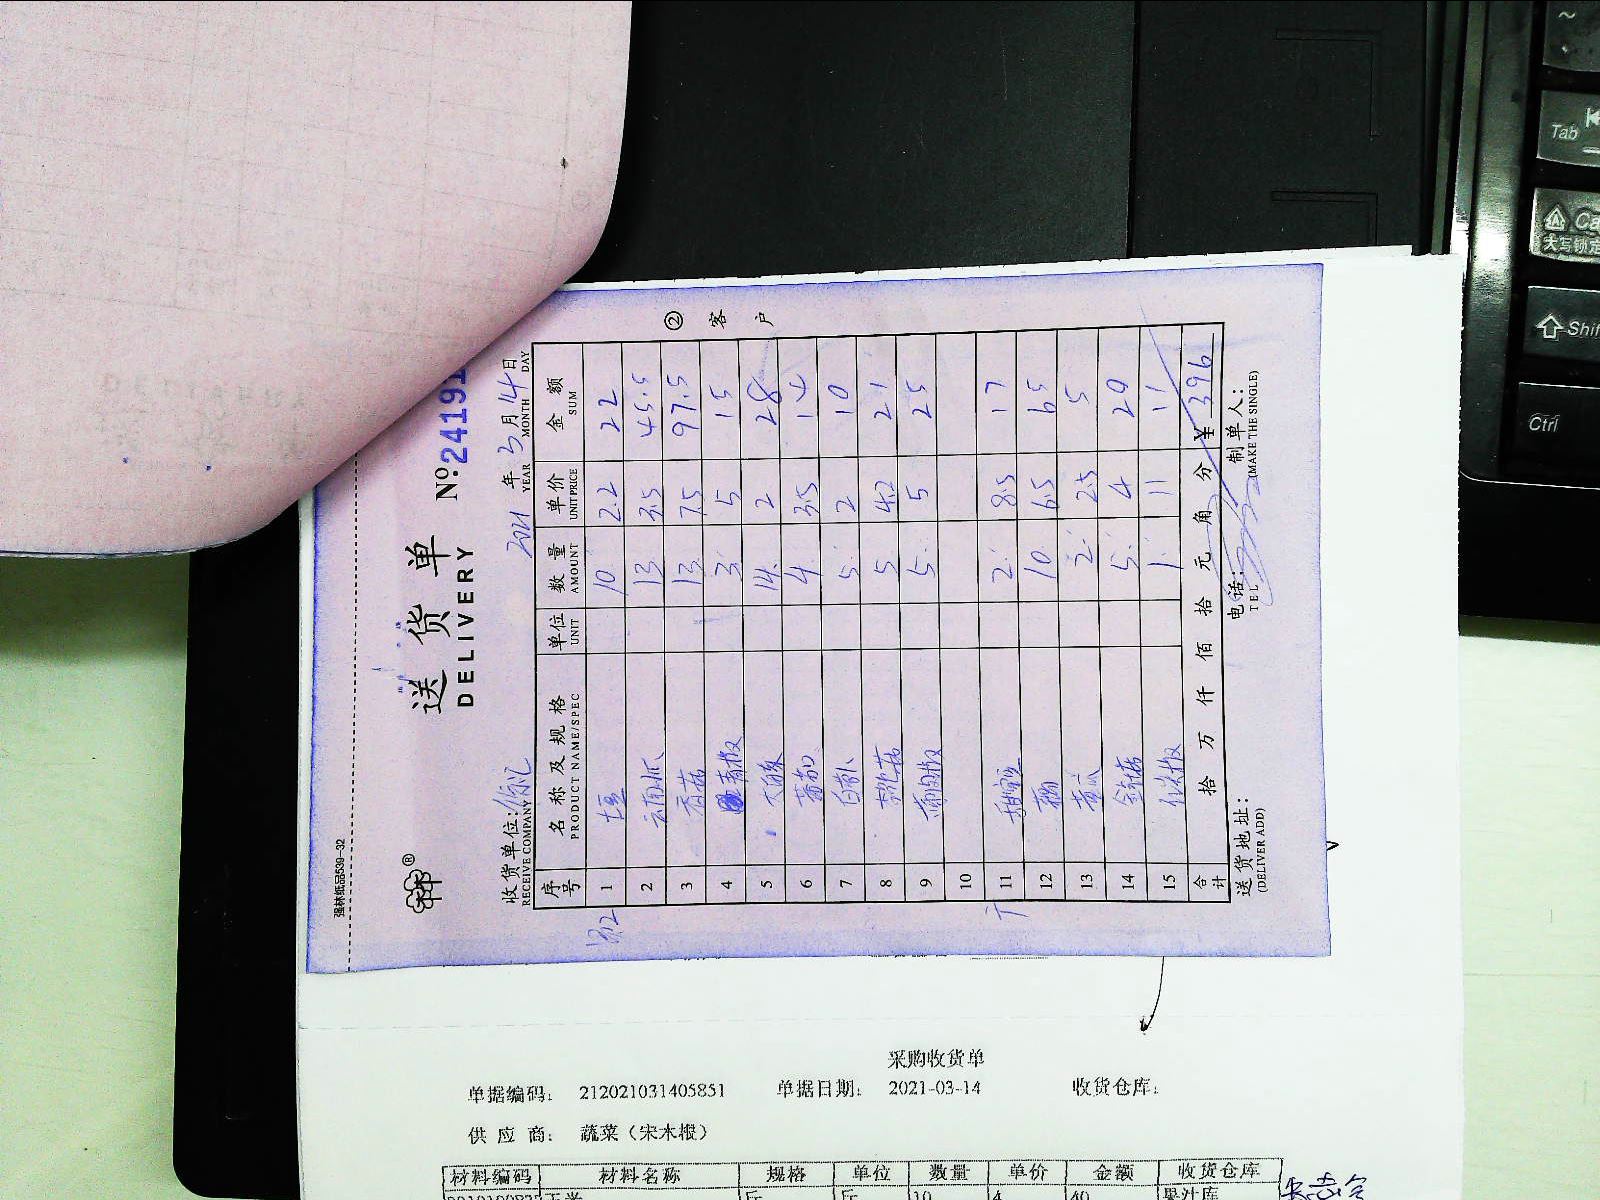 强林纸品539-32
送货单
DELIVERY
№ 24191
收货单位:
RECEIVE COMPANY
2021 年 3 月 14 日
YEAR MONTH DAY
② 客户
序号 名称及规格 单位 数量 单价 金额
PRODUCT NAME/SPEC UNIT AMOUNT UNIT PRICE SUM
1 土豆 10 2.2 22
2 云南瓜 13 3.5 45.5
3 香菇 13 7.5 97.5
4 青椒 3 5 15
5 大白菜 14 2 28
6 4 3.5 14
7 白萝卜 5 2 10
8 5 4.2 21
9 5 5 25
10
11 2 8.5 17
12 10 6.5 65
13 黄瓜 2 2.5 5
14 金针菇 5 4 20
15 1 11 11
合计 拾 万 仟 佰 拾 元 角 分 ¥ 396
送货地址: 电话: 制单人:
(DELIVER ADD) TEL (MAKE THE SINGLE)
采购收货单
单据编码: 212021031405851 单据日期: 2021-03-14 收货仓库:
供应商: 蔬菜（宋木根）
材料编码 材料名称 规格 单位 数量 单价 金额 收货仓库
斤 斤 10 4 40 果汁库
Tab
大写锁定
Shif
Ctrl